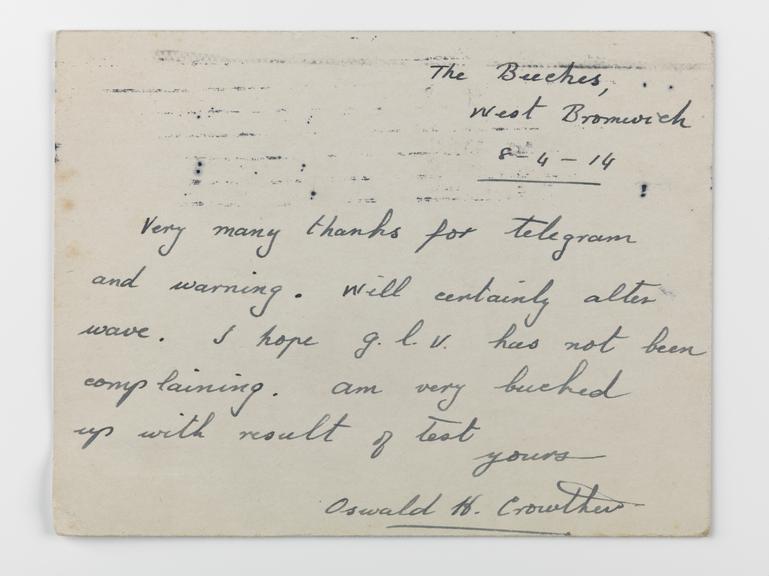 The Beeches,
West Bromwich
8-4-14
Very many thanks for telegram
and warning. Will certainly alter
wave. I hope g.l.v. has not been
complaining. am very bucked
up with result of test
yours
Oswald H. Crowther